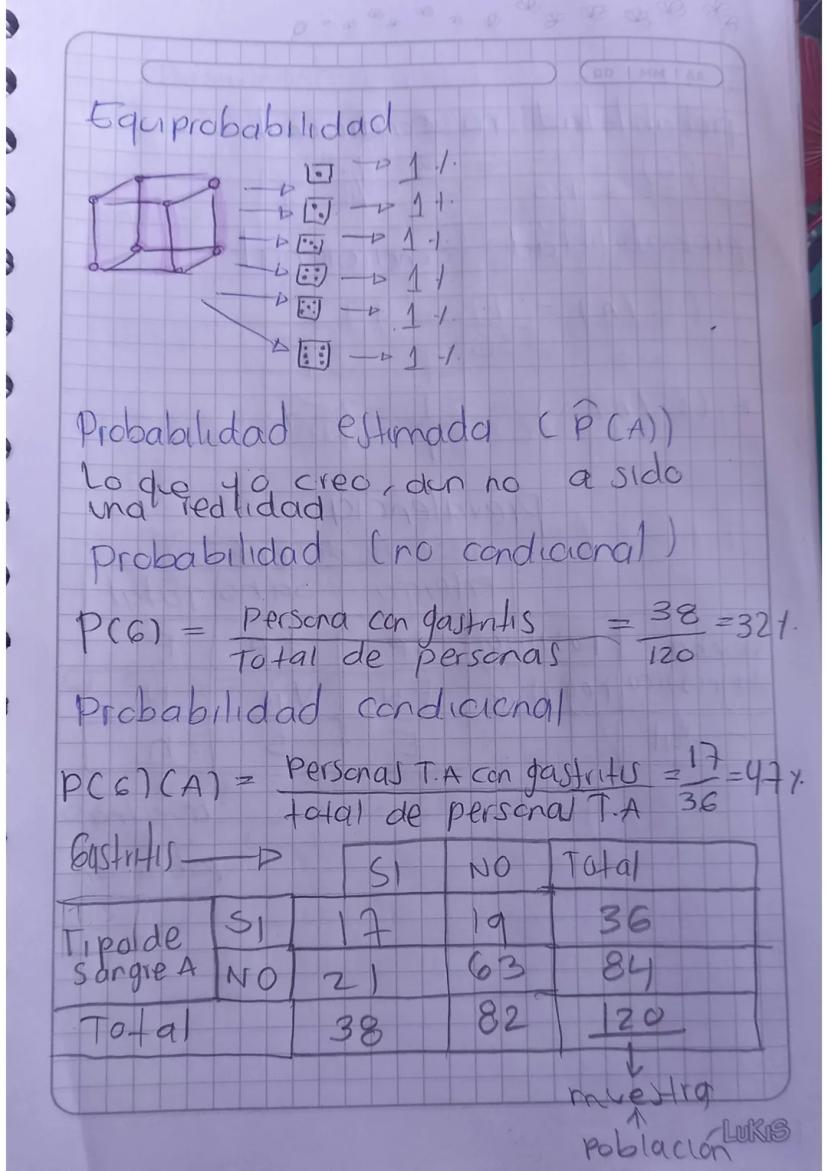 DD | MM | AA
Equiprobabilidad
1 %
1 %
1 %
1 %
1 %
1 %
Probabilidad estimada (P̂(A))
Lo que yo creo, aun no a sido
una realidad
Probabilidad (no condicional)
P(G) = Persona con gastritis / Total de personas = 38/120 = 32%
Probabilidad condicional
P(G)(A) = Personas T.A con gastritis / total de personas T.A = 17/36 = 47%
Gastritis
SI NO Total
Tipo de sangre A SI 17 19 36
NO 21 63 84
Total 38 82 120
muestra
Población
LUKIS